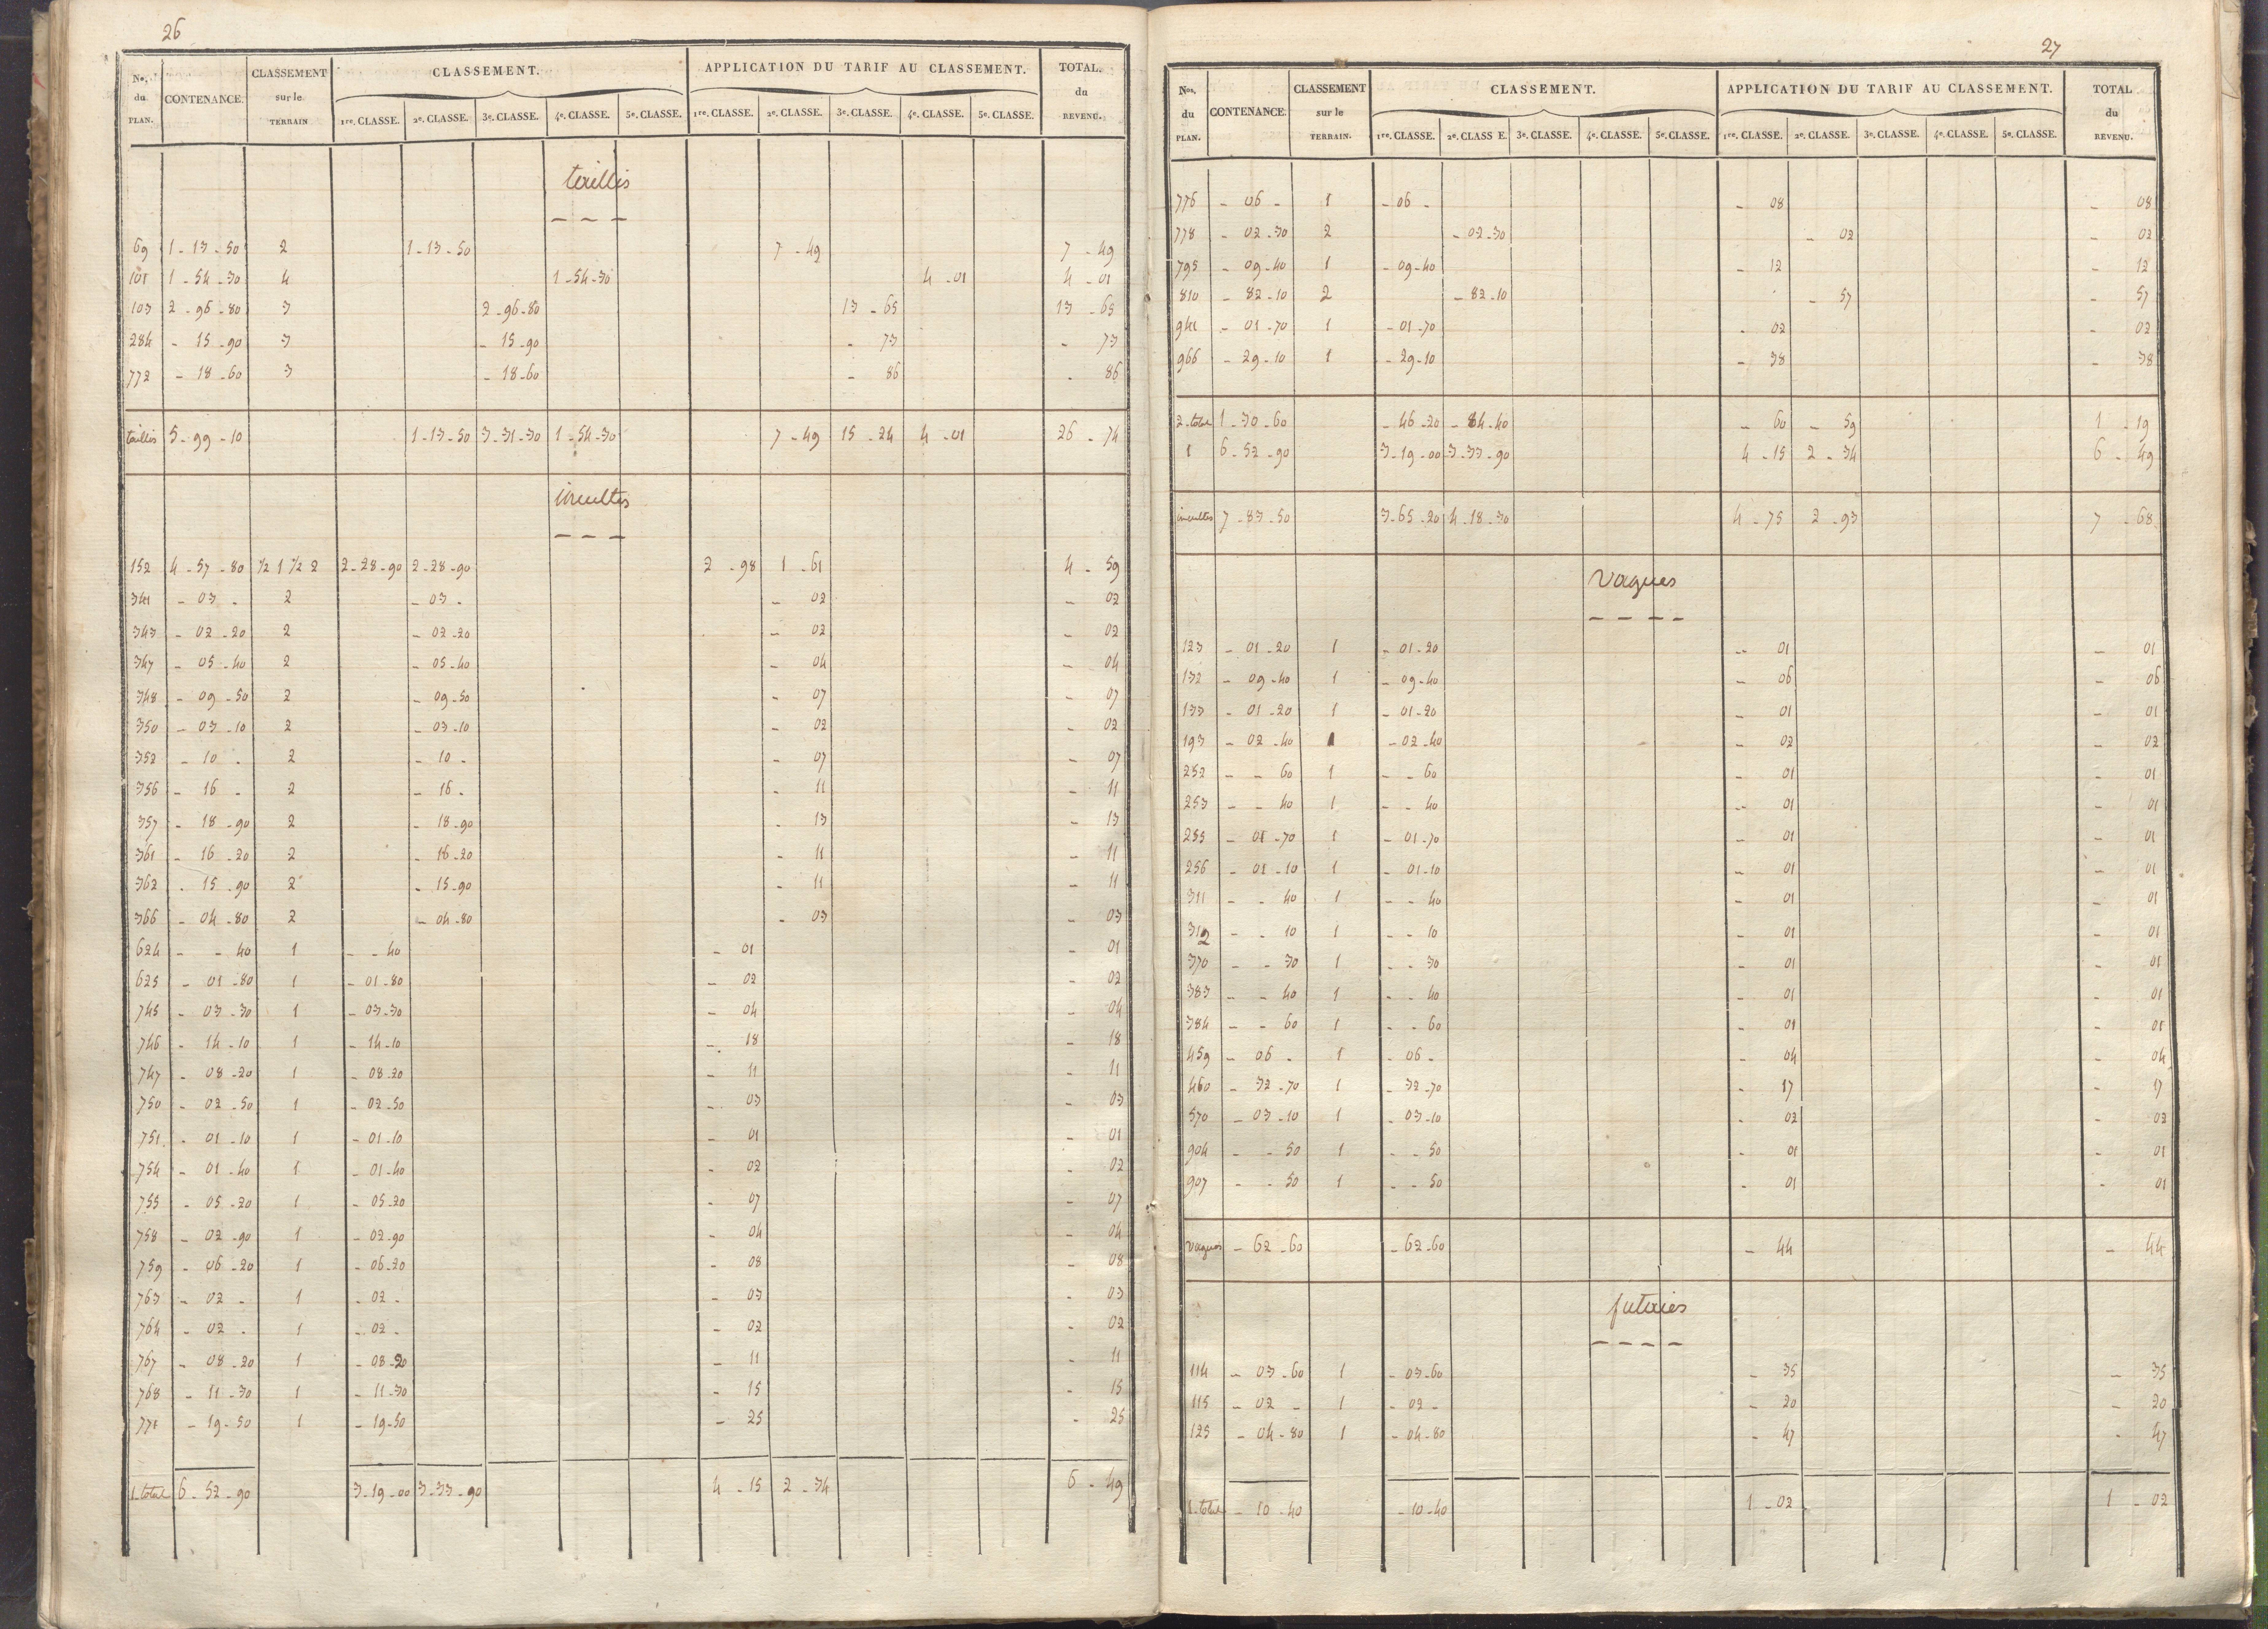 26
Nos. du PLAN. CONTENANCE. CLASSEMENT sur le TERRAIN CLASSEMENT. APPLICATION DU TARIF AU CLASSEMENT. TOTAL. du REVENU.
1re. CLASSE. 2e. CLASSE. 3e. CLASSE. 4e. CLASSE. 5e. CLASSE. 1re. CLASSE. 2e. CLASSE. 3e. CLASSE. 4e. CLASSE. 5e. CLASSE.
taillis
69 1-13-50 2 1-13-50 7-49 7-49
101 1-54-30 4 1-54-30 4-01 4-01
103 2-96-80 3 2-96-80 13-65 13-65
284 - 15-90 3 - 15-90 - 73 - 73
772 - 18-60 3 - 18-60 - 86 - 86
taillis 5-99-10 1-13-50 3-31-30 1-54-30 7-49 15-24 4-01 26-74
incultes
152 4-57-80 1/2 1 1/2 2 2-28-90 2-28-90 2-98 1-61 4-59
341 - 03 - 2 - 03 - - 02 - 02
343 - 02-20 2 - 02-20 - 02 - 02
347 - 05-40 2 - 05-40 - 04 - 04
348 - 09-50 2 - 09-50 - 07 - 07
350 - 03-10 2 - 03-10 - 02 - 02
352 - 10 - 2 - 10 - - 07 - 07
356 - 16 - 2 - 16 - - 11 - 11
357 - 18-90 2 - 18-90 - 13 - 13
361 - 16-20 2 - 16-20 - 11 - 11
362 - 15-90 2 - 15-90 - 11 - 11
366 - 04-80 2 - 04-80 - 03 - 03
624 - - 40 1 - - 40 - 01 - 01
625 - 01-80 1 - 01-80 - 02 - 02
745 - 03-30 1 - 03-30 - 04 - 04
746 - 14-10 1 - 14-10 - 18 - 18
747 - 08-20 1 - 08-20 - 11 - 11
750 - 02-50 1 - 02-50 - 03 - 03
751 - 01-10 1 - 01-10 - 01 - 01
754 - 01-40 1 - 01-40 - 02 - 02
755 - 05-20 1 - 05-20 - 07 - 07
758 - 02-90 1 - 02-90 - 04 - 04
759 - 06-20 1 - 06-20 - 08 - 08
763 - 02 - 1 - 02 - - 03 - 03
764 - 02 - 1 - 02 - - 02 - 02
767 - 08-20 1 - 08-20 - 11 - 11
768 - 11-30 1 - 11-30 - 15 - 15
771 - 19-50 1 - 19-50 - 25 - 25
1.total 6-52-90 3-19-00 3-33-90 4-15 2-34 6-49
27
Nos. du PLAN. CONTENANCE. CLASSEMENT sur le TERRAIN. CLASSEMENT. APPLICATION DU TARIF AU CLASSEMENT. TOTAL du REVENU.
1re. CLASSE. 2e. CLASS E. 3e. CLASSE. 4e. CLASSE. 5e. CLASSE. 1re. CLASSE. 2e. CLASSE. 3e. CLASSE. 4e. CLASSE. 5e. CLASSE.
776 - 06 - 1 - 06 - - 08 - 08
778 - 02-30 2 - 02-30 - 02 - 02
795 - 09-40 1 - 09-40 - 12 - 12
810 - 82-10 2 - 82-10 - 57 - 57
941 - 01-70 1 - 01-70 - 02 - 02
966 - 29-10 1 - 29-10 - 38 - 38
2.total 1-30-60 - 46-20 - 84-40 - 60 - 59 1-19
1 6-52-90 3-19-00 3-33-90 4-15 2-34 6-49
incultes 7-83-50 3-65-20 4-18-30 4-75 2-93 7-68
vagues
123 - 01-20 1 - 01-20 - 01 - 01
132 - 09-40 1 - 09-40 - 06 - 06
133 - 01-20 1 - 01-20 - 01 - 01
193 - 02-40 1 - 02-40 - 02 - 02
252 - - 60 1 - - 60 - 01 - 01
253 - - 40 1 - - 40 - 01 - 01
255 - 01-70 1 - 01-70 - 01 - 01
256 - 01-10 1 - 01-10 - 01 - 01
311 - - 40 1 - - 40 - 01 - 01
312 - - 10 1 - - 10 - 01 - 01
370 - - 30 1 - - 30 - 01 - 01
383 - - 40 1 - - 40 - 01 - 01
384 - - 60 1 - - 60 - 01 - 01
459 - 06 - 1 - 06 - - 04 - 04
460 - 32-70 1 - 32-70 - 17 - 17
570 - 03-10 1 - 03-10 - 02 - 02
904 - - 50 1 - - 50 - 01 - 01
907 - - 50 1 - - 50 - 01 - 01
vagues - 62-60 - 62-60 - 44 - 44
futaies
114 - 03-60 1 - 03-60 - 35 - 35
115 - 02 - 1 - 02 - - 20 - 20
125 - 04-80 1 - 04-80 - 47 - 47
1.total - 10-40 - 10-40 1-02 1-02